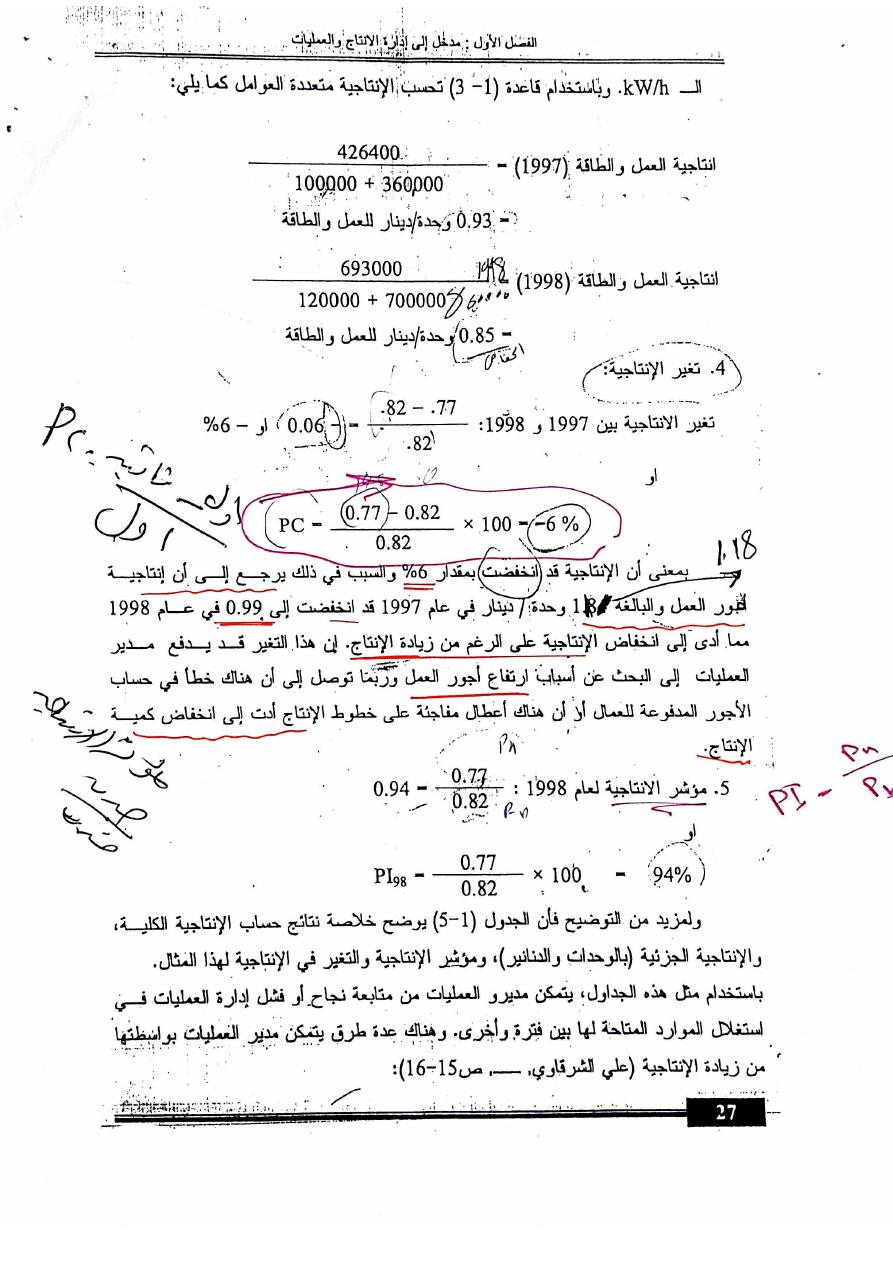 الفصل الأول : مدخل إلى إدارة الانتاج والعمليات
الـ kW/h. وباستخدام قاعدة (1- 3) تحسب الإنتاجية متعددة العوامل كما يلي:
426400
انتاجية العمل والطاقة (1997) =
100000 + 360000
= 0.93 وحدة/دينار للعمل والطاقة
693000
انتاجية العمل والطاقة (1998)
120000 + 700000
= 0.85 وحدة/دينار للعمل والطاقة
انخفاض
4. تغير الإنتاجية:
.82 – .77
تغير الانتاجية بين 1997 و 1998: = (- 0.06) او – 6%
.82
او
0.77 - 0.82
PC = × 100 = -6 %
0.82
1.18
بمعنى أن الإنتاجية قد انخفضت بمقدار 6% والسبب في ذلك يرجع إلى أن إنتاجية
أجور العمل والبالغة وحدة / دينار في عام 1997 قد انخفضت إلى 0.99 في عام 1998
مما أدى إلى انخفاض الإنتاجية على الرغم من زيادة الإنتاج. إن هذا التغير قد يدفع مدير
العمليات إلى البحث عن أسباب ارتفاع أجور العمل وربما توصل إلى أن هناك خطأ في حساب
الأجور المدفوعة للعمال أو أن هناك أعطال مفاجئة على خطوط الإنتاج أدت إلى انخفاض كمية
الإنتاج.
Pn
0.77
5. مؤشر الانتاجية لعام 1998 : = 0.94
0.82
PI =
Pn
او
0.77
PI98 = × 100 = 94%
0.82
ولمزيد من التوضيح فأن الجدول (1-5) يوضح خلاصة نتائج حساب الإنتاجية الكلية،
والإنتاجية الجزئية (بالوحدات والدنانير)، ومؤشر الإنتاجية والتغير في الإنتاجية لهذا المثال.
باستخدام مثل هذه الجداول، يتمكن مديرو العمليات من متابعة نجاح أو فشل إدارة العمليات في
استغلال الموارد المتاحة لها بين فترة وأخرى. وهناك عدة طرق يتمكن مدير العمليات بواسطتها
من زيادة الإنتاجية (علي الشرقاوي، ـــ، ص15-16):
27